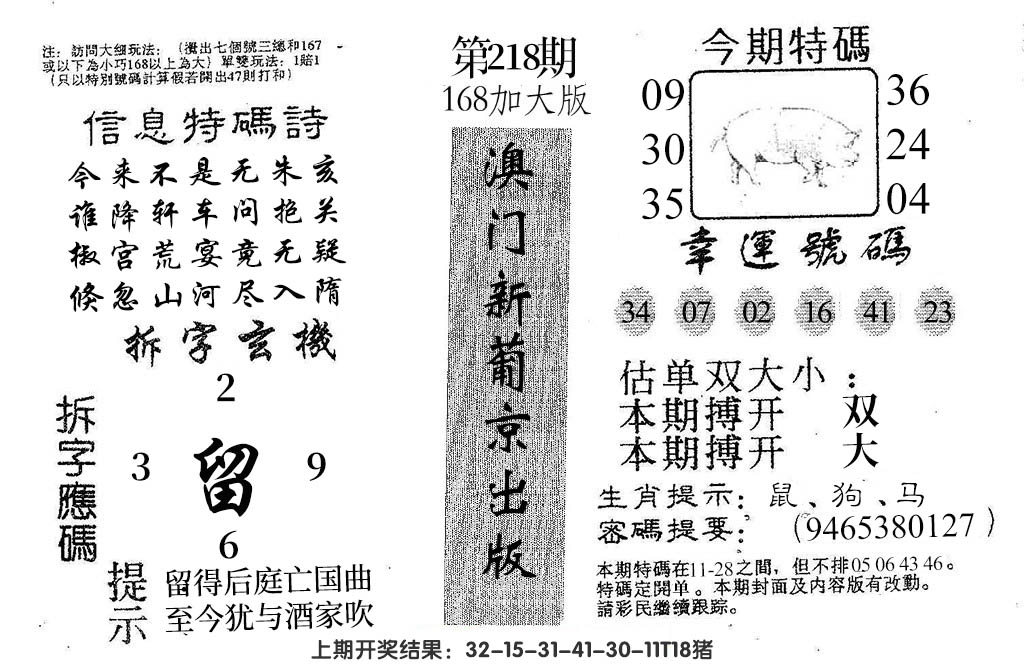 注：訪問大细玩法：（攪出七個號三總和167
或以下為小巧168以上為大）單雙玩法：1賠1
（只以特別號碼計算假若開出47則打和）
信息特碼詩
今来不是无朱亥
谁降轩车问抱关
椒宫荒宴竟无疑
倏忽山河尽入隋
拆字玄機
拆字應碼
2
3 留 9
6
提示
留得后庭亡国曲
至今犹与酒家吹
第218期
168加大版
澳门新葡京出版
今期特碼
09 36
30 24
35 04
幸運號碼
34 07 02 16 41 23
估单双大小：
本期搏开 双
本期搏开 大
生肖提示：鼠、狗、马
密碼提要：（9465380127）
本期特碼在11-28之間，但不排05 06 43 46。
特碼定開单。本期封面及内容版有改動。
請彩民繼續跟踪。
上期开奖结果：32-15-31-41-30-11T18猪